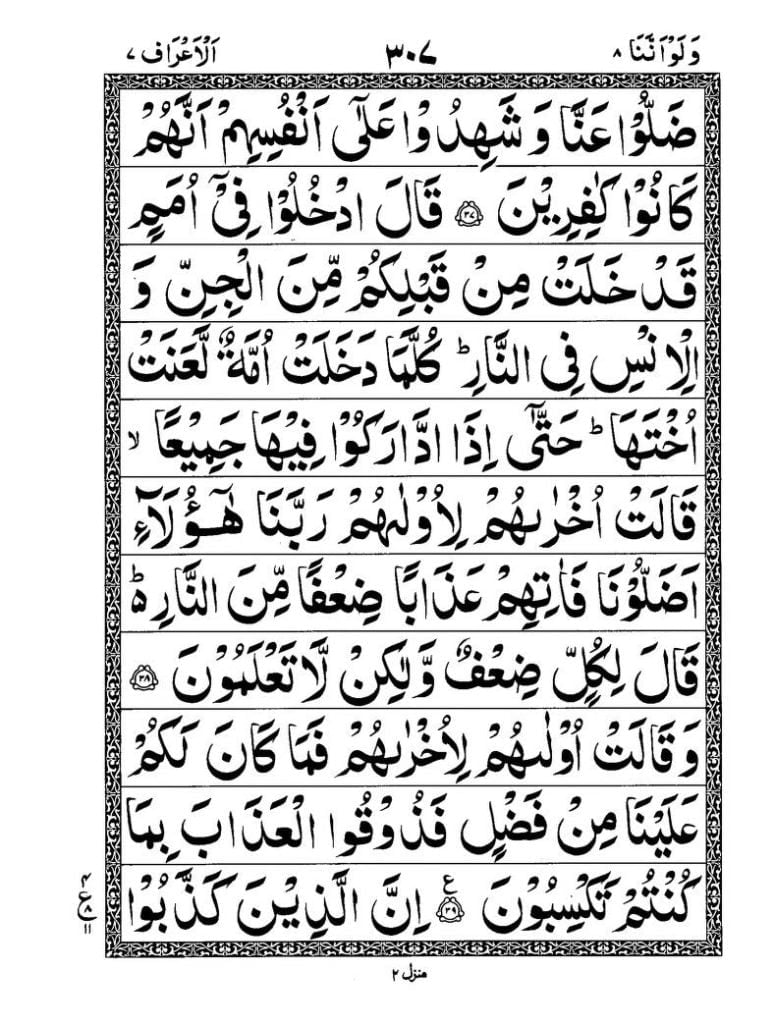 وَلَوْاَنَّنَا ٨ ٣٠٧ اَلْاَعْرَاف ٧
ضَلُّوْا عَنَّا وَ شَهِدُوْا عَلٰۤى اَنْفُسِهِمْ اَنَّهُمْ
كَانُوْا كٰفِرِيْنَ ﴿۳۷﴾ قَالَ ادْخُلُوْا فِيْۤ اُمَمٍ
قَدْ خَلَتْ مِنْ قَبْلِكُمْ مِّنَ الْجِنِّ وَ
الْاِنْسِ فِي النَّارِ ؕ كُلَّمَا دَخَلَتْ اُمَّةٌ لَّعَنَتْ
اُخْتَهَا ؕ حَتّٰۤى اِذَا ادَّارَكُوْا فِيْهَا جَمِيْعًا ۙ
قَالَتْ اُخْرٰىهُمْ لِاُوْلٰىهُمْ رَبَّنَا هٰۤؤُلَآءِ
اَضَلُّوْنَا فَاٰتِهِمْ عَذَابًا ضِعْفًا مِّنَ النَّارِ ۬ؕ
قَالَ لِكُلٍّ ضِعْفٌ وَّلٰكِنْ لَّا تَعْلَمُوْنَ ﴿۳۸﴾
وَ قَالَتْ اُوْلٰىهُمْ لِاُخْرٰىهُمْ فَمَا كَانَ لَكُمْ
عَلَيْنَا مِنْ فَضْلٍ فَذُوْقُوا الْعَذَابَ بِمَا
كُنْتُمْ تَكْسِبُوْنَ ﴿۳۹﴾ ع اِنَّ الَّذِيْنَ كَذَّبُوْا
۴
ع ٨
١١
منزل ٢